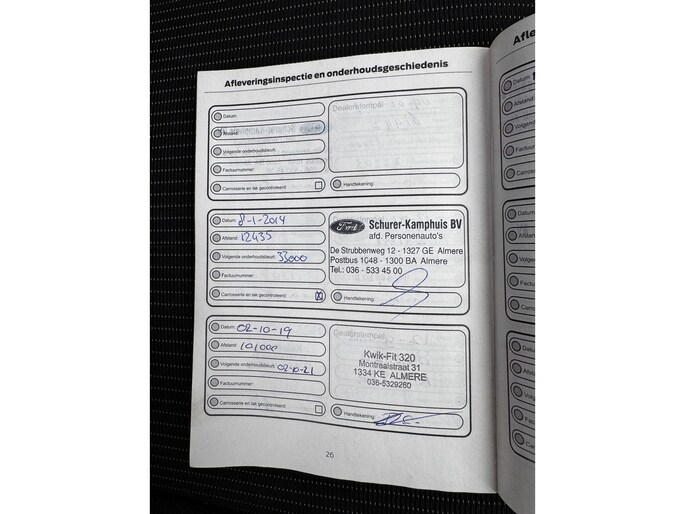 Afleveringsinspectie en onderhoudsgeschiedenis
Datum:
Afstand:
Volgende onderhoudsbeurt:
Factuurnummer:
Carrosserie en lak gecontroleerd:
Dealerstempel
Handtekening:
Datum: 8-1-2014
Afstand: 12435
Volgende onderhoudsbeurt: 33000
Factuurnummer:
Carrosserie en lak gecontroleerd: X
Ford Schurer-Kamphuis BV
afd. Personenauto's
De Strubbenweg 12 - 1327 GE Almere
Postbus 1048 - 1300 BA Almere
Tel.: 036 - 533 45 00
Handtekening:
Datum: 02-10-19
Afstand: 101000
Volgende onderhoudsbeurt: 02-10-21
Factuurnummer:
Carrosserie en lak gecontroleerd:
Dealerstempel
Kwik-Fit 320
Montrealstraat 31
1334 KE ALMERE
036-5329260
Handtekening:
26
Datum:
Afstand:
Volgende
Factuurn
Carrosse
Datum:
Afstand:
Volgend
Factuur
Carross
Datu
Afsta
Volg
Fact
Carr